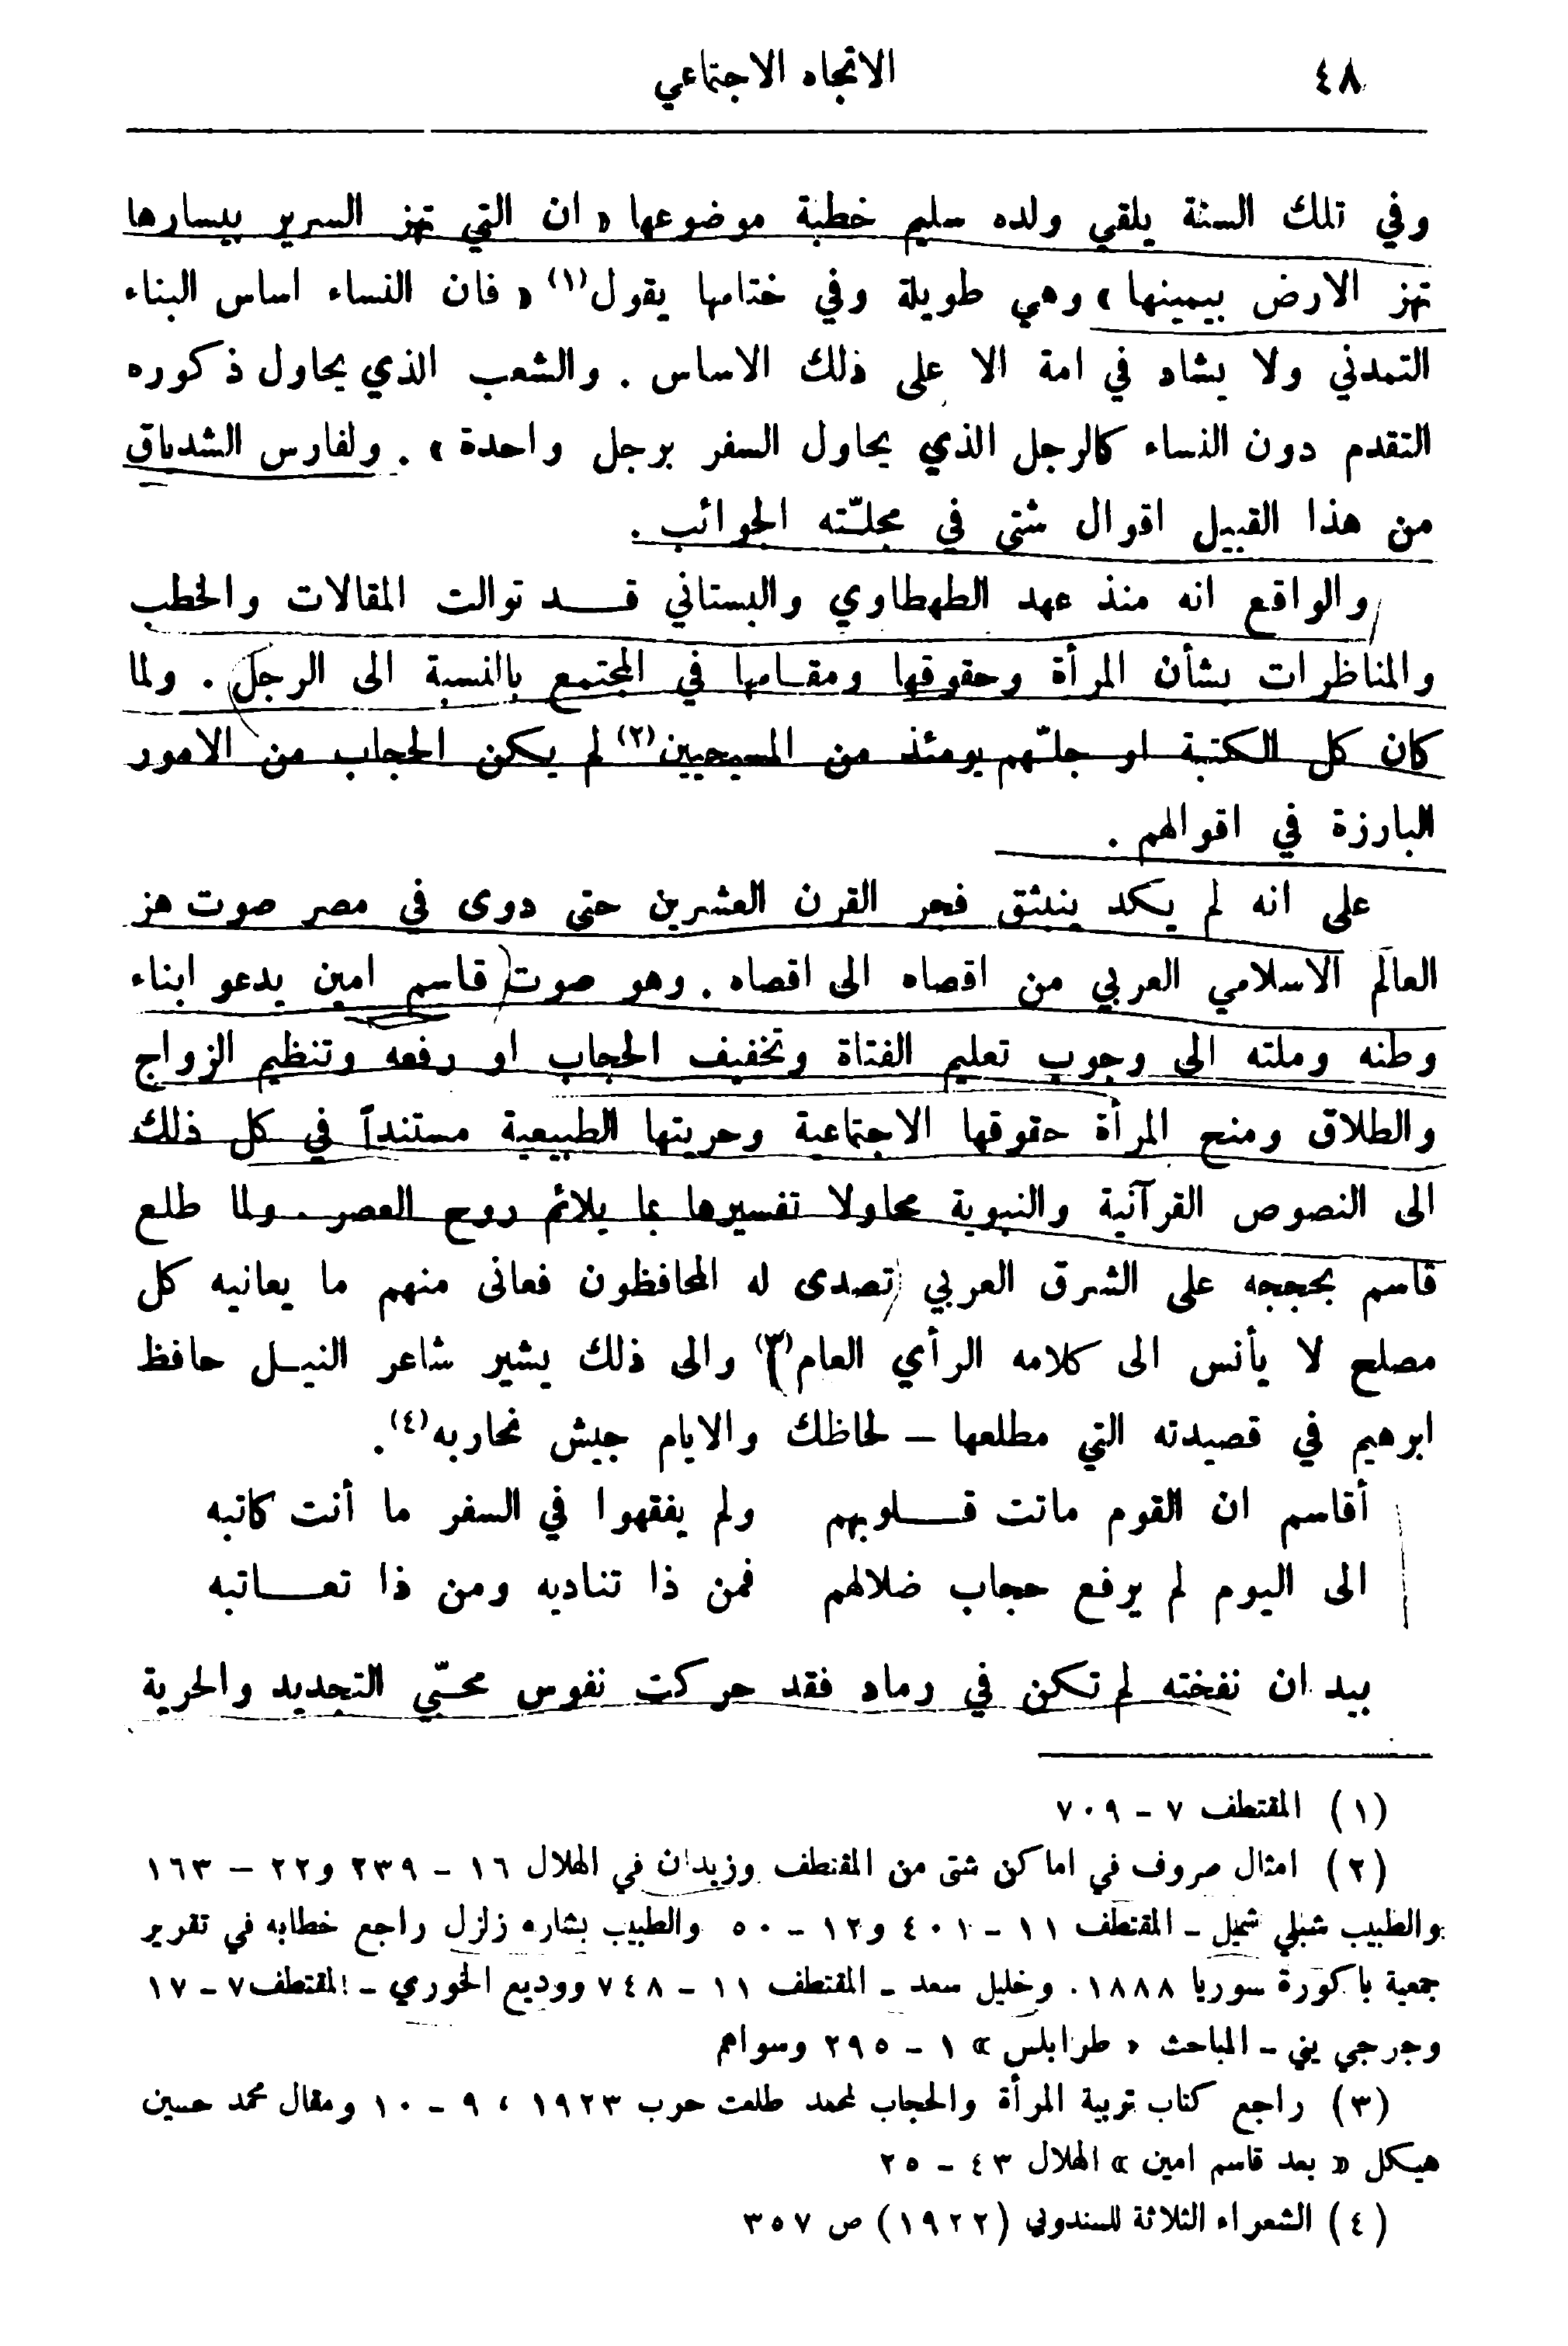 ٤٨ الاتجاه الاجتماعي
وفي تلك السنة يلقي ولده سليم خطبة موضوعها « ان التي تهز السرير بيسارها
تهز الارض بيمينها » وهي طويلة وفي ختامها يقول(١) « فان النساء اساس البناء
التمدني ولا يشاد في امة الا على ذلك الاساس . والشعب الذي يحاول ذكوره
التقدم دون النساء كالرجل الذي يحاول السفر برجل واحدة » . ولفارس الشدياق
من هذا القبيل اقوال شتى في مجلّته الجوائب .
والواقع انه منذ عهد الطهطاوي والبستاني قد توالت المقالات والخطب
والمناظرات بشأن المرأة وحقوقها ومقامها في المجتمع بالنسبة الى الرجل . ولما
كان كل الكتبة او جلّهم يومئذ من المسيحيين(٢) لم يكن الحجاب من الامور
البارزة في اقوالهم .
على انه لم يكد ينبثق فجر القرن العشرين حتى دوى في مصر صوت هز
العالم الاسلامي العربي من اقصاه الى اقصاه . وهو صوت قاسم امين يدعو ابناء
وطنه وملته الى وجوب تعليم الفتاة وتخفيف الحجاب او رفعه وتنظيم الزواج
والطلاق ومنح المرأة حقوقها الاجتماعية وحريتها الطبيعية مستنداً في كل ذلك
الى النصوص القرآنية والنبوية محاولا تفسيرها بما يلائم روح العصر . ولما طلع
قاسم بحججه على الشرق العربي تصدى له المحافظون فعانى منهم ما يعانيه كل
مصلح لا يأنس الى كلامه الرأي العام(٣) والى ذلك يشير شاعر النيل حافظ
ابرهيم في قصيدته التي مطلعها – لحاظك والايام جيش نحاربه(٤) .
أقاسم ان القوم ماتت قلوبهم ولم يفقهوا في السفر ما أنت كاتبه
الى اليوم لم يرفع حجاب ضلالهم فمن ذا تناديه ومن ذا تعاتبه
بيد ان نفخته لم تكن في رماد فقد حركت نفوس محبّي التجديد والحرية
(١) المقتطف ٧ - ٧٠٩
(٢) امثال صروف في اماكن شتى من المقتطف وزيدان في الهلال ١٦ - ٢٣٩ و٢٢ – ١٦٣
والطبيب شبلي شميل - المقتطف ١١ - ٤٠١ و١٢ - ٥٠ والطبيب بشاره زلزل راجع خطابه في تقرير
جمعية باكورة سوريا ١٨٨٨ . وخليل سعد - المقتطف ١١ - ٧٤٨ ووديع الخوري - المقتطف ٧ - ١٧
وجرجي يني - المباحث « طرابلس » ١ - ٢٩٥ وسواهم
(٣) راجع كتاب تربية المرأة والحجاب لمحمد طلعت حرب ١٩٢٣ ، ٩ - ١٠ ومقال محمد حسين
هيكل « بعد قاسم امين » الهلال ٤٣ - ٢٥
(٤) الشعراء الثلاثة للسندوبي (١٩٢٢) ص ٣٥٧